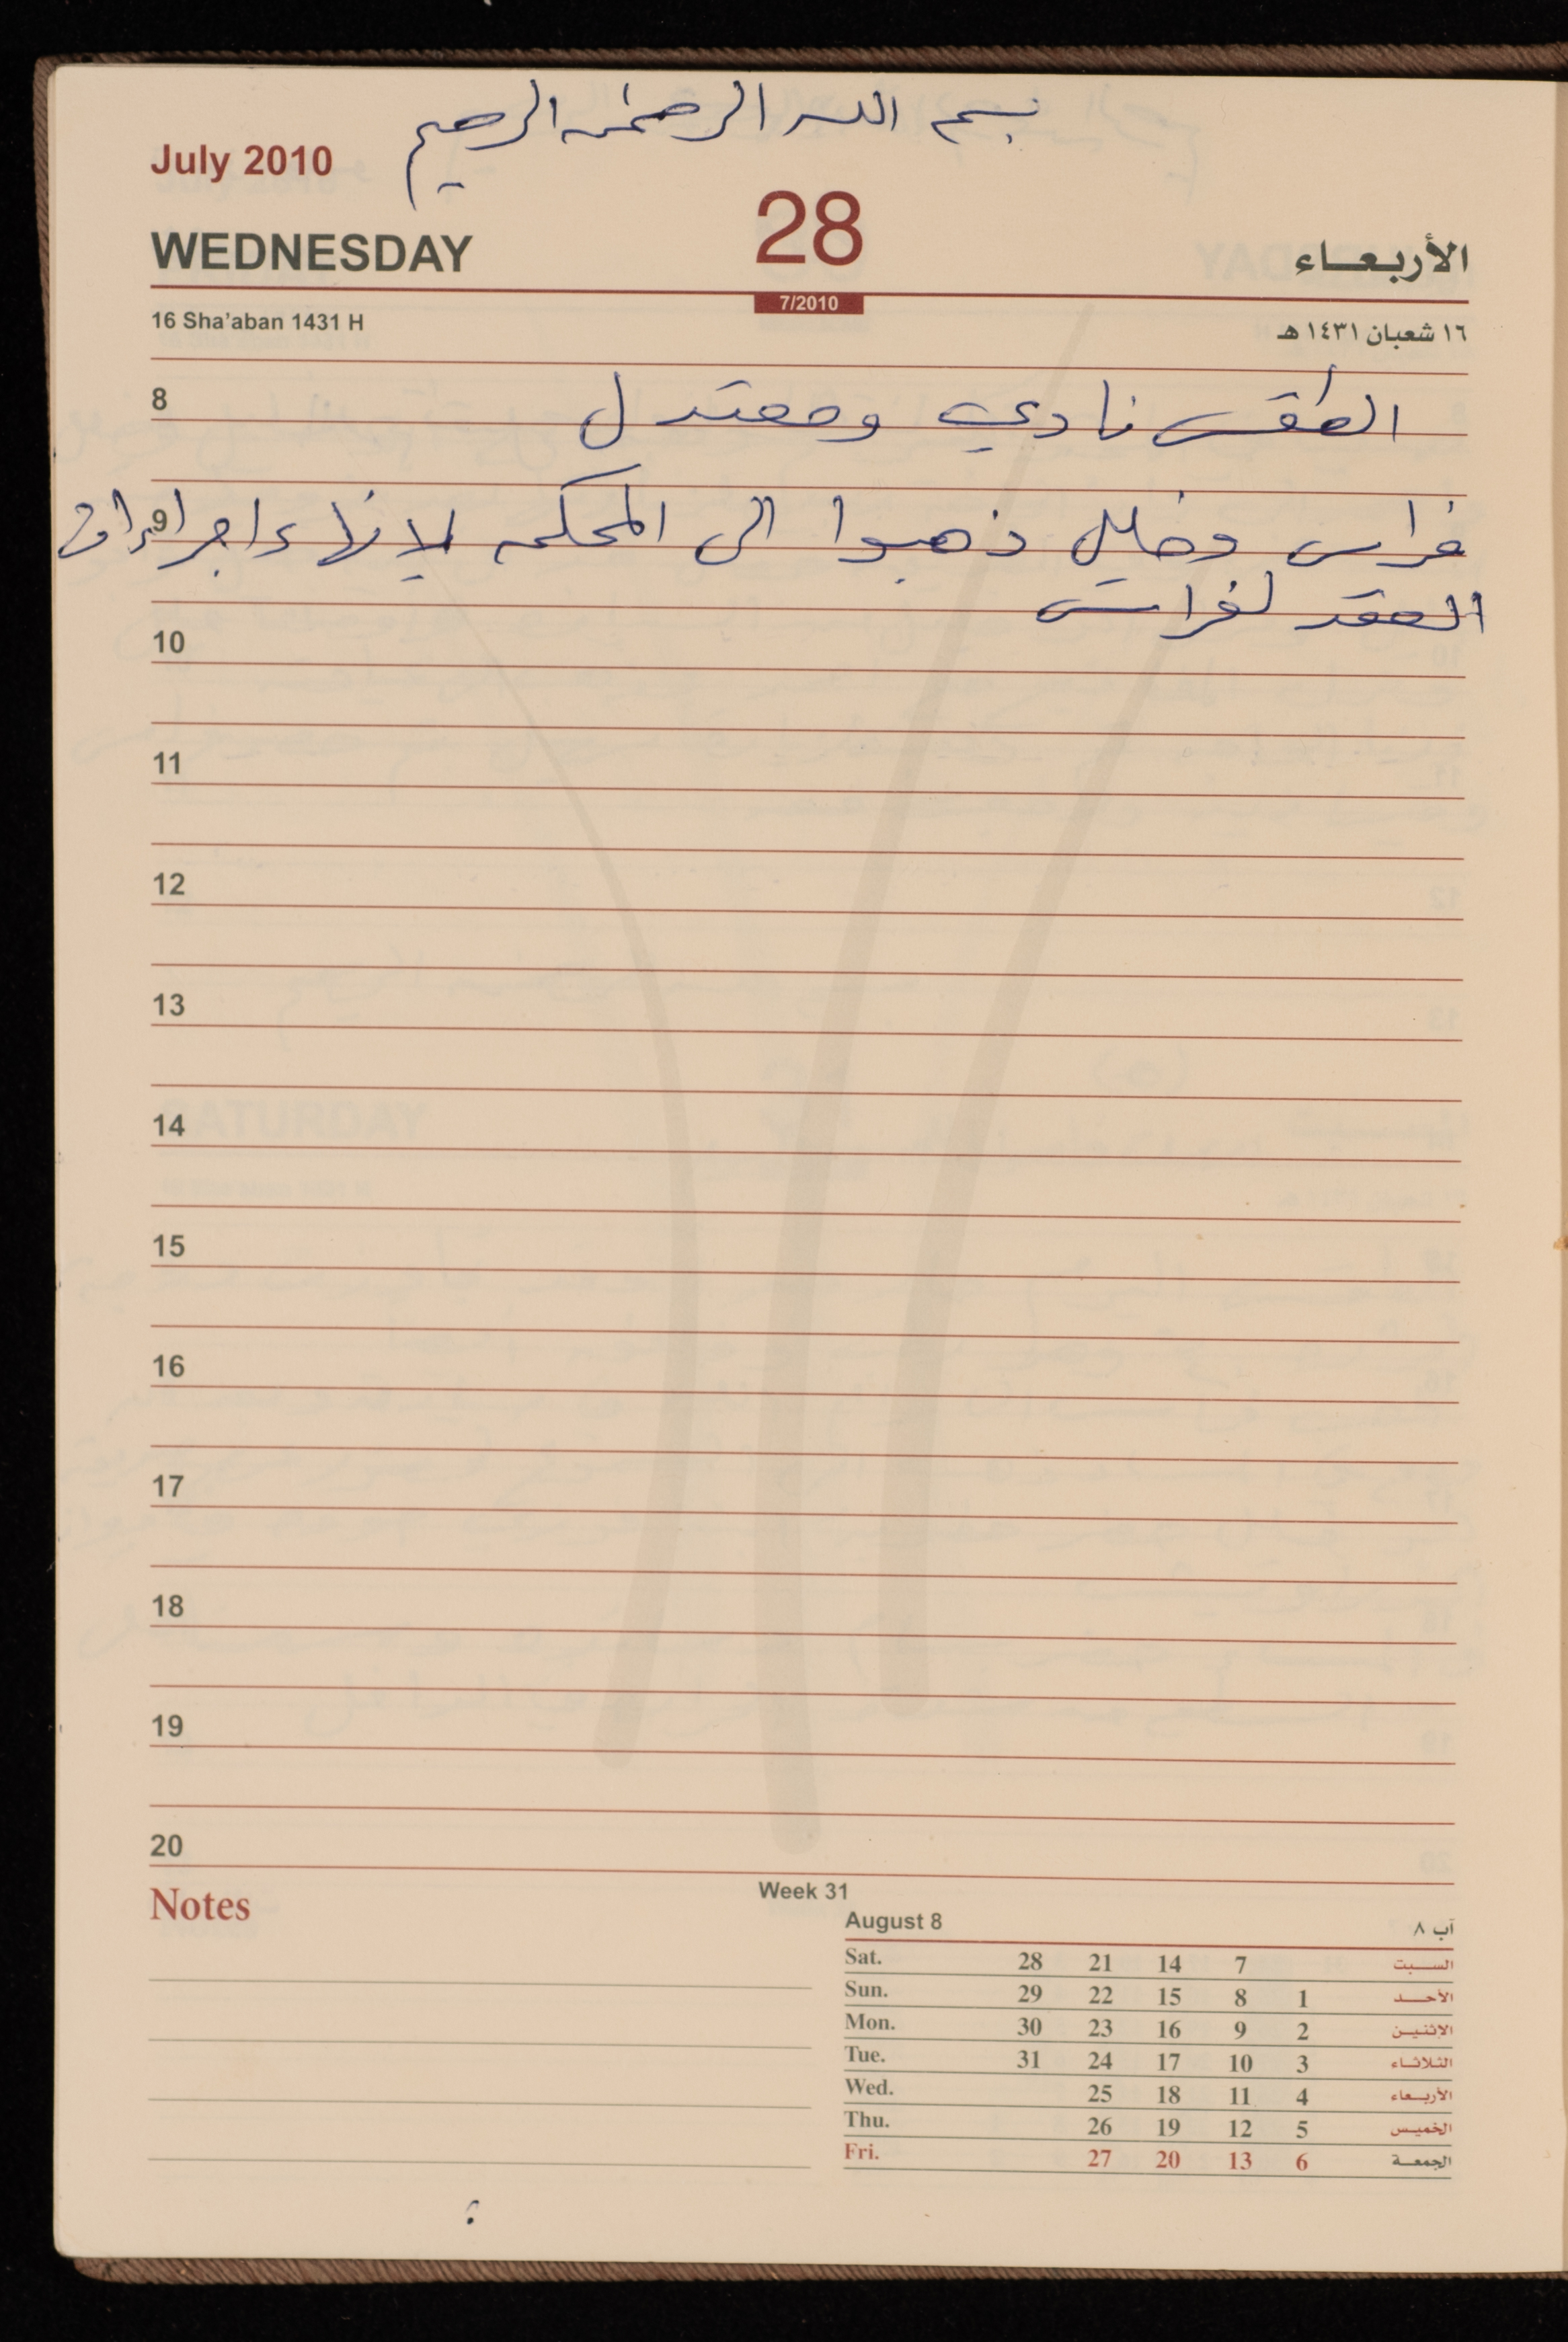 بسم الله الرحمن الرحيم
July 2010
WEDNESDAY 28 الأربعاء
7/2010
16 Sha'aban 1431 H ١٦ شعبان ١٤٣١ هـ
8 الطقس نادي ومعتدل
9 فراس وخليل ذهبوا الى المحكمه لانهاء اجراءات
العقد لفراس
10
11
12
13
14
15
16
17
18
19
20
Notes
Week 31
August 8 آب ٨
Sat. 28 21 14 7 السبت
Sun. 29 22 15 8 1 الأحد
Mon. 30 23 16 9 2 الاثنين
Tue. 31 24 17 10 3 الثلاثاء
Wed. 25 18 11 4 الأربعاء
Thu. 26 19 12 5 الخميس
Fri. 27 20 13 6 الجمعة